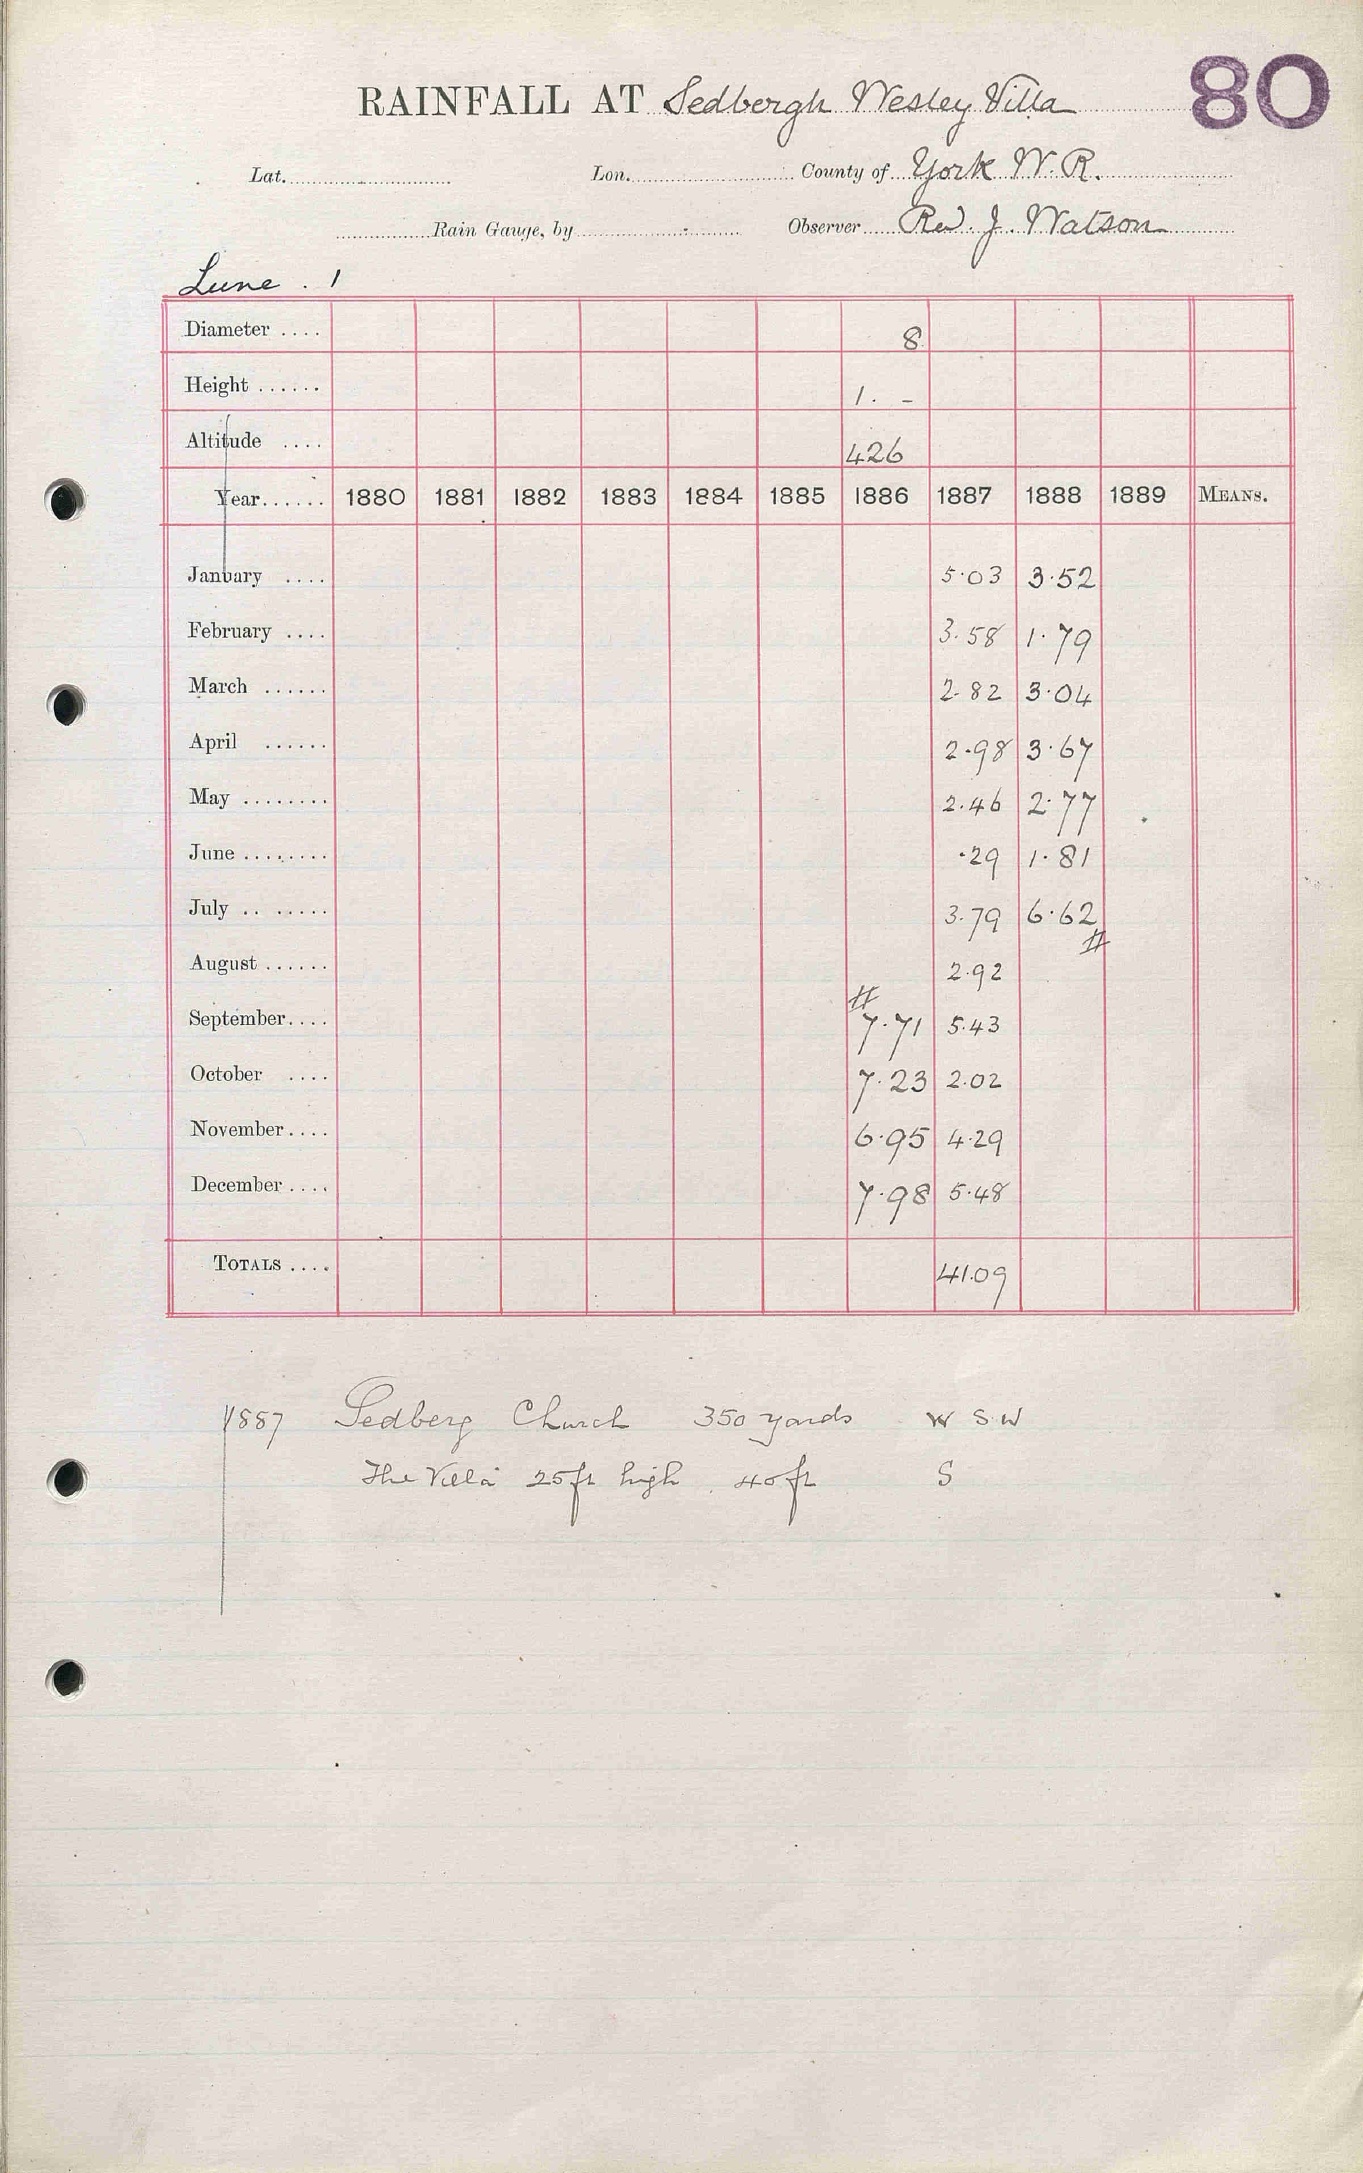 80
RAINFALL AT Sedbergh Wesley Villa
Lat. Lon. County of York W. R.
Rain Gauge, by Observer Rev. J. Watson
Lune . 1
Diameter .... 8
Height ...... 1. -
Altitude .... 426
Year...... 1880 1881 1882 1883 1884 1885 1886 1887 1888 1889 MEANS.
January .... 5.03 3.52
February .... 3.58 1.79
March ...... 2.82 3.04
April ...... 2.98 3.67
May ........ 2.46 2.77
June ........ .29 1.81
July .. ..... 3.79 6.62
#
August ...... 2.92
#
September.... 7.71 5.43
October .... 7.23 2.02
November.... 6.95 4.29
December.... 7.98 5.48
TOTALS .... 41.09
1887 Sedberg Church 350 yards W S W
The Villa 25ft high 40ft S